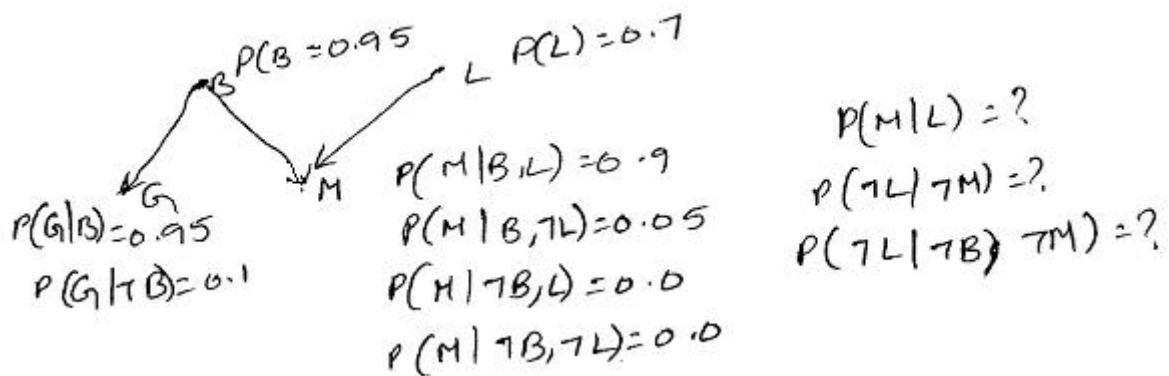 P(B = 0.95
B
L P(L) = 0.7
G
P(G|B) = 0.95
P(G|¬B) = 0.1
M
P(M|B,L) = 0.9
P(M|B,¬L) = 0.05
P(M|¬B,L) = 0.0
P(M|¬B,¬L) = 0.0
P(M|L) = ?
P(¬L|¬M) = ?
P(¬L|¬B, ¬M) = ?